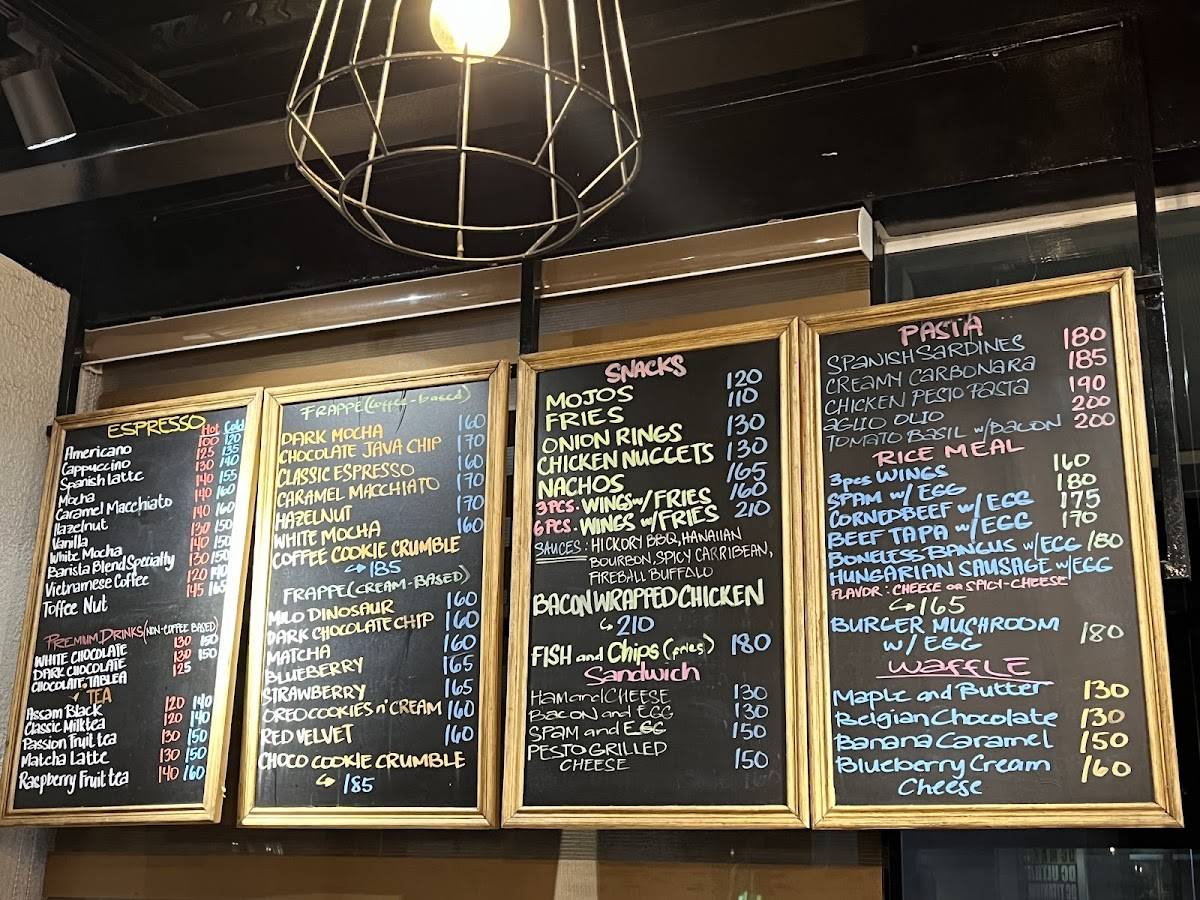 ESPRESSO
Hot Cold
Americano 100 120
Cappuccino 125 135
Spanish Latte 130 140
Mocha 140 155
Caramel Macchiato 140 160
Hazelnut 140 160
Vanilla 130 150
White Mocha 140 150
Barista Blend Specialty 130 150
Vietnamese Coffee 120 140
Toffee Nut 145 165
PREMIUM DRINKS (NON-COFFEE BASED)
WHITE CHOCOLATE 130 150
DARK CHOCOLATE 130 150
CHOCOLATE TABLEA 125
TEA
Assam Black 120 140
Classic Milktea 120 140
Passion Fruit tea 130 150
Matcha Latte 130 150
Raspberry Fruit tea 140 160
FRAPPE (coffee-based)
DARK MOCHA 160
CHOCOLATE JAVA CHIP 170
CLASSIC ESPRESSO 160
CARAMEL MACCHIATO 170
HAZELNUT 170
WHITE MOCHA 160
COFFEE COOKIE CRUMBLE
↪ 185
FRAPPE (CREAM-BASED)
MILO DINOSAUR 160
DARK CHOCOLATE CHIP 160
MATCHA 160
BLUEBERRY 165
STRAWBERRY 165
OREO COOKIES n' CREAM 160
RED VELVET 160
CHOCO COOKIE CRUMBLE
↪ 185
SNACKS
MOJOS 120
FRIES 110
ONION RINGS 130
CHICKEN NUGGETS 130
NACHOS 165
3PCS. WINGS w/ FRIES 160
6PCS. WINGS w/ FRIES 210
SAUCES: HICKORY BBQ, HANAIIAN
BOURBON, SPICY CARRIBEAN,
FIREBALL BUFFALO
BACON WRAPPED CHICKEN
↪ 210
FISH and Chips (fries) 180
Sandwich
HAM and CHEESE 130
BACON and EGG 130
SPAM and EGG 150
PESTO GRILLED 150
CHEESE
PASTA
SPANISH SARDINES 180
CREAMY CARBONARA 185
CHICKEN PESTO PASTA 190
AGLIO OLIO 200
TOMATO BASIL w/ BACON 200
RICE MEAL
3pcs WINGS 160
SPAM w/ EGG 180
CORNED BEEF w/ EGG 175
BEEF TAPA w/ EGG 170
BONELESS BANGUS w/ EGG 180
HUNGARIAN SAUSAGE w/ EGG
FLAVOR: CHEESE OR SPICY-CHEESE
↪ 165
BURGER MUSHROOM 180
W/ EGG
WAFFLE
Maple and Butter 130
Belgian Chocolate 130
Banana Caramel 150
Blueberry Cream 160
Cheese